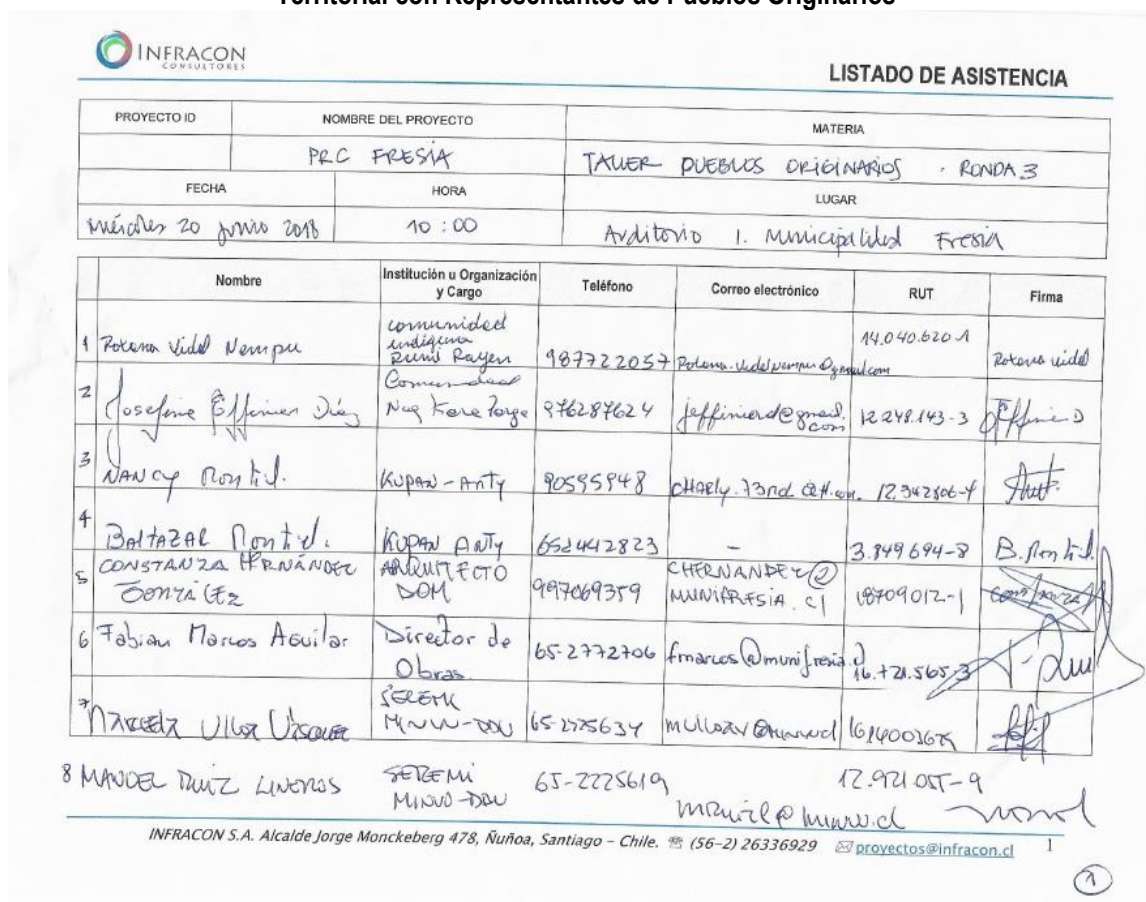 Territorial con Representantes de Pueblos Originarios
INFRACON
CONSULTORES
LISTADO DE ASISTENCIA
PROYECTO ID NOMBRE DEL PROYECTO MATERIA
PRC FRESIA TALLER PUEBLOS ORIGINARIOS - RONDA 3
FECHA HORA LUGAR
miércoles 20 junio 2018 10:00 Auditorio I. Municipalidad Fresia
Nombre Institución u Organización y Cargo Teléfono Correo electrónico RUT Firma
1 Roxana Vidal Nempu comunidad indigena Rayen 987722057 14.040.620-1 Roxana vidal
2 Josefina Effimier Díaz Comunidad 976287624 jeffimierd@gmail.com 12.248.143-3
3 NANCY Montiel. KUPAN-ANTY 90595948 12.342806-4
4 BALTAZAR Montiel. KUPAN ANTY 652442823 - 3.849694-8 B. Montiel
5 CONSTANZA HERNÁNDEZ GONZÁLEZ ARQUITECTO DOM 997069359 CHERNANDEZ@MUNIFRESIA.CL 18709012-1 Constanza
6 Fabian Marcos Aguilar Director de Obras 65-2772706 fmarcos@munifresia.cl 16.721.565-3
7 Ulloa Vásquez SEREMI MINVU-DDU 65-2225634
8 MANUEL RUIZ SEREMI MINVU-DDU 65-2225619 12.921.055-9
INFRACON S.A. Alcalde Jorge Monckeberg 478, Ñuñoa, Santiago – Chile. (56-2) 26336929 proyectos@infracon.cl 1
1